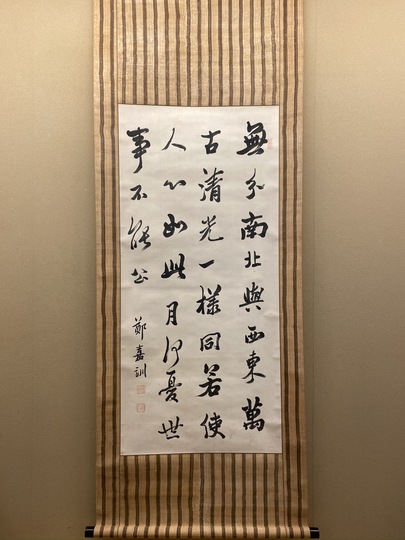 無分南北與西東萬
古清光一様同若使
人心如此月何憂世
事不能公
鄭嘉訓